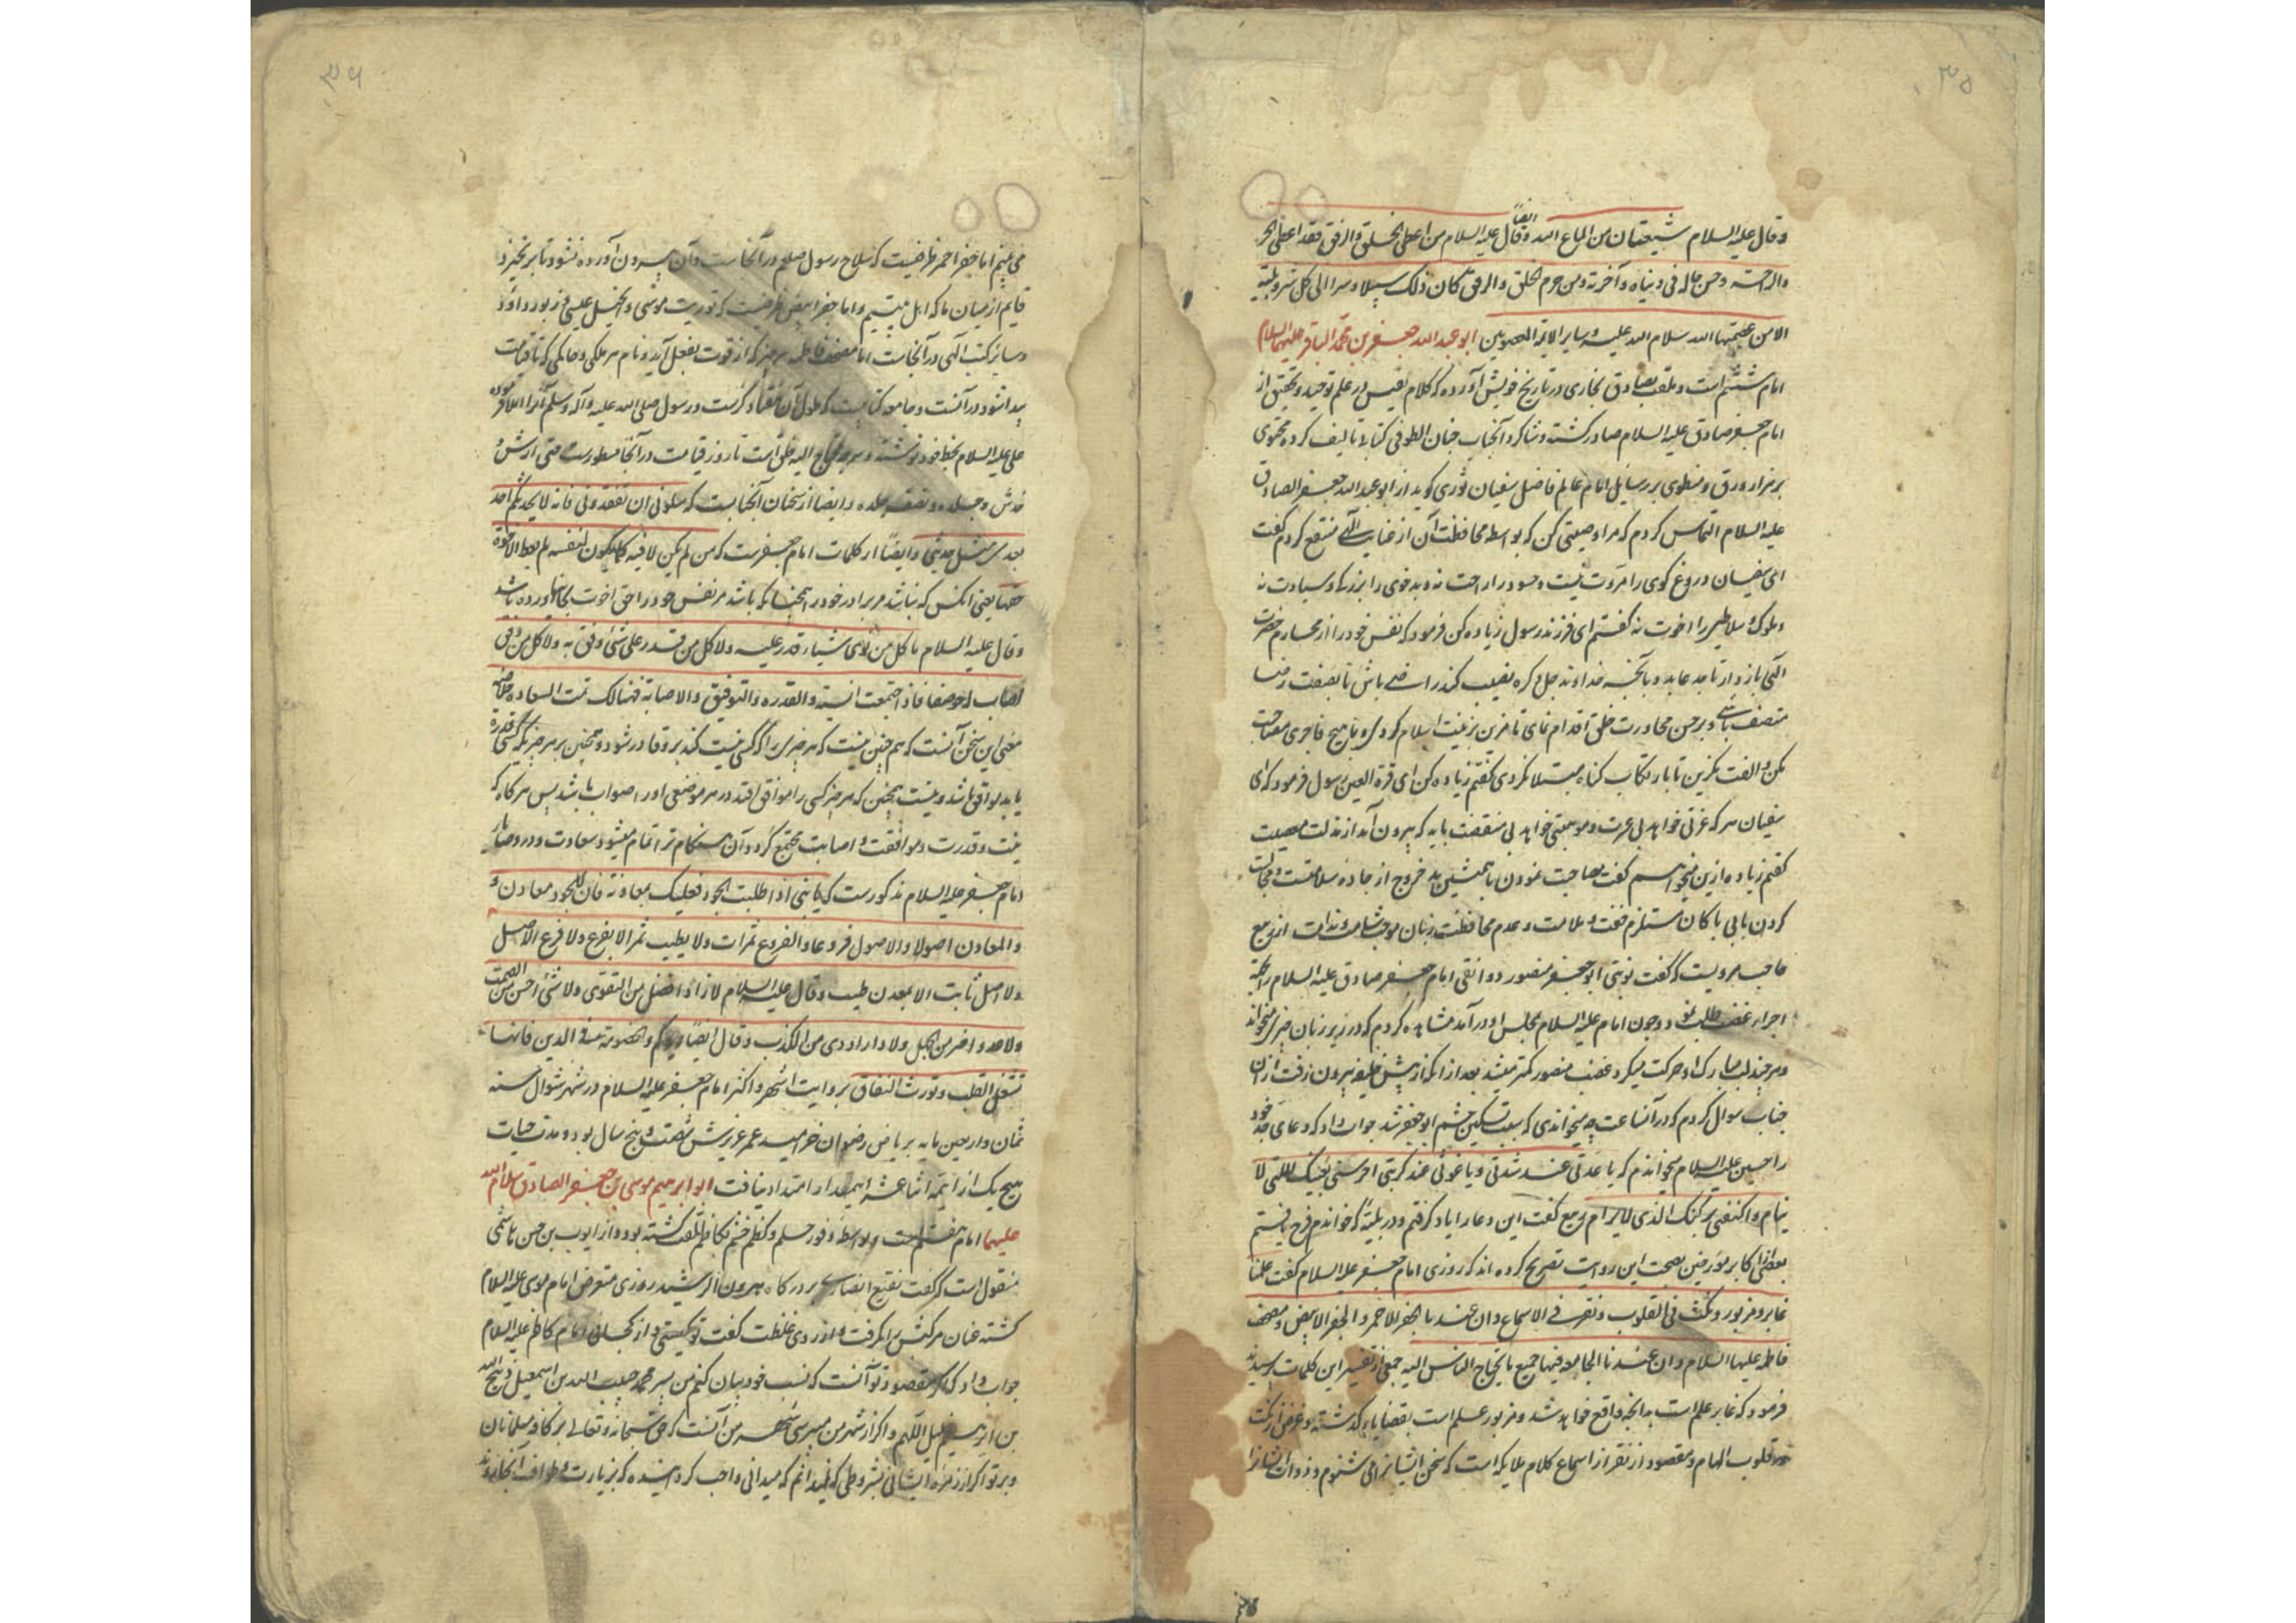 ۳۵
وقال علیه السلام شیعتنا من اطاع الله وقال ایضاً علیه السلام من اعطی الخلق والرفق فقد اعطی الخیر
والراحته وحسن حاله فی دنیاه وآخرته ومن حرم الخلق والرفق کان ذلک سبیلا وسرا الی کل شر وبلیته
الا من عصمتها الله سلام الله علیه و سایر الایمة المعصومین ابو عبد الله جعفر بن محمد الباقر علیهما السلام
امام ششم است و ملقب بصادق بخاری در تاریخ خویش آورده که کلام نفیس در علم توحید و تحقیق از
امام جعفر صادق علیه السلام صادر کشته و شاکرد آنجناب جنان الطوفی کتابی تالیف کرده محتوی
بر هزار ورق و منطوی بر رسایل امام عالم فاضل سفیان ثوری کوید از ابو عبد الله جعفر الصادق
علیه السلام التماس کردم که مرا وصیتی کن که بواسطه محافظت آن از عنایت الهی منتفع کردم گفت
ای سفیان دروغ کوی را مروت نیست و حسود را راحت نه و بد خوی را بزرکی و سیادت نه
و ملوک و سلاطین را اخوت نه گفتم ای فرزند رسول زیاده کن فرمود که نفس خود را از محارم حضرت
الهی باز دار تا جد عابد و بآنچه خداوند جل ذکره نصیب کند راضی باش تا بصفت رضا
متصف باشی و بر حسن مجاورت خلق اقدام نمای تا مزین بزینت اسلام کردی و با هیچ فاجری مصاحبت
مکن و الفت مکزین تا بارتکاب کناه مبتلا نکردی گفتم زیاده کن ای قرة العین رسول فرمود که ای
سفیان هر که عزتی خواهد بی عشرت و موهبتی خواهد بی منقصت باید که بیرون آید از مذلت معصیت
گفتم زیاده ازین میخواهم گفت مصاحبت نمودن با همنشین بد خروج از جاده سلامتست و مجالست
کردن با بی باکان مستلزم خفت و ملامت و عدم محافظت زبان موجب شامت و ندامت از ربیع
حاجب مرویست که گفت نوبتی ابو جعفر منصور دوانقی امام جعفر صادق علیه السلام را بجهة
اجراء غضب طلب نمود و چون امام علیه السلام بمجلس او در آمد مشاهده کردم که در زیر زبان چیزی میخواند
و هر چند لب مبارک او حرکت میکرد غضب منصور کمتر میشد بعد از آنکه از پیش خلیفه بیرون رفت از آن
جناب سوال کردم که در آنساعت چه میخواندی که سبب تسکین خشم ابو جعفر شد جواب داد که دعای جد خود
را حسین علیه السلام میخواندم که یا عدتی عند شدتی و یا غوثی عند کربتی احرسنی بعینک اللتی لا
ینام و اکنفنی برکنک الذی لا یرام ربیع گفت این دعا را یاد کرفتم و در هر بلیه که خواندم فرج یافتم
بعضی از اکابر مورخین بصحت این روایت تصریح کرده اند که روزی امام جعفر علیه السلام گفت علمنا
غابر و مزبور و نکت فی القلوب و نقر فی الاسماع و ان عندنا الجفر الاحمر و الجفر الابیض و مصحف
فاطمه علیها السلام و ان عندنا الجامعه فیها جمیع ما یحتاج الناس الیه جمعی از تفسیر این کلمات پرسیدند
فرمود که غابر علم است بدانچه واقع خواهد شد و مزبور علم است بقضایاء که شته و غرض از نکت
در قلوب الهام و مقصود از نقر از اسماع کلام ملایکه است که سخن ایشانرا می شنوم و ذوات ایشانرا
۳۶
می بینم اما جفر احمر ظرفیست که سلاح رسول صلعم در آنجاست و آن بیرون آورده نشود تا بر نخیزد
قایم از میان ما که اهل بیتیم و اما جفر ابیض ظرفیست که توریت موسی و انجیل عیسی و زبور داؤد
و سایر کتب الهی در آنجاست اما مصحف فاطمه هر چیز که از قوت بفعل آید و نام هر ملکی و حاکمی که تا قیامت
پیدا شود در آنست و جامعه کتابیست که طول آن هفتاد کزست و رسول صلی الله علیه و آله وسلم آنرا املا فرموده
علی علیه السلام بخط خود نوشته و هر چه محتاج الیه خلق است تا روز قیامت در آنجا مسطورست حتی ارش
خدش و جلده و نصف جلده و ایضا از سخنان آنجنابست که سلونی ان تفقدونی فانه لا یحدثکم احد
بعدی بمثل حدیثی و ایضاً از کلمات امام جعفرست که من لم یکن لاخیه کما یکون لنفسه لم یعط الاخوة
حقها یعنی آنکس که نباشد مر برادر خود را همچنانکه باشد مر نفس خود را حق اخوت بجای نیاورده باشد
وقال علیه السلام ما کل من رای شیاء قدر علیه ولا کل من قدر علی شئ وفق به ولا کل من وفق
اصاب له موضعا فاذا اجتمعت النیته والقدره والتوفیق والاصابة فهنالک تمت السعاده خلاصه
معنی این سخن آنست که هم چنین نیست که هر چیزی را که کسی نیت کند برو قادر شود و همچنین بر هر چیز که کسی قدرة
یابد موافق باشد و نیست همچنین که هر چیز کسی را موافق افتد در هر موضعی او را صواب باشد پس هر گاه که
نیت و قدرت و موافقت و اصابت مجتمع کردد آن هنکام ترا تمام میشود سعادت و در وصایاء
امام جعفر علیه السلام مذکورست که یا بنی اذا طلبت الجود فعلیک بمعادنه فان للجود معادن و
والمعادن اصولا والاصول فروعا والفروع ثمرات ولا یطیب ثمر الا بفرع ولا فرع الا اصل
ولا اصل ثابت الا بمعدن طیب وقال علیه السلام لا زاد افضل من التقوی ولا شئ احسن من الصمت
ولا عدو اضر من الجهل ولا داء ادوی من الکذب وقال ایضاً ایاکم والخصومة فی الدین فانها
تشغل القلب وتورث النفاق بروایت اشهر و اکثر امام جعفر علیه السلام در شهر شوال سنه
ثمان و اربعین مایه بریاض رضوان خرامید عمر عزیزش شصت و پنج سال بود و مدت حیات
هیچ یک از ایمه اثنا عشر اینمقدار امتداد نیافت ابو ابرهیم موسی بن جعفر الصادق سلام الله
علیهما امام هفتم است و بواسطه وفور حلم و کظم خشم بکاظم ملقب کشته بود و از ایوب بن حسن هاشمی
منقول است که گفت نقیع انصاری بر درکاه هرون الرشید روزی متعرض امام موسی علیه السلام
کشته عنان مرکبش را بکرفت و از روی غلظت گفت تو کیستی و از کجائی امام کاظم علیه السلام
جواب داد که اگر مقصود تو آنست که نسب خود بیان کنم من پسر محمد حبیب الله بن اسمعیل ذبیح الله
بن ابرهیم خلیل اللهم و اکر از شهر من میپرسی شهر من آنست که حق سبحانه و تعالی بر کافه مسلمانان
و بر تو اکر از زمره ایشانی بشروطی که میدانم که میدانی واجب کردانیده که بزیارت و طواف آنجا روند